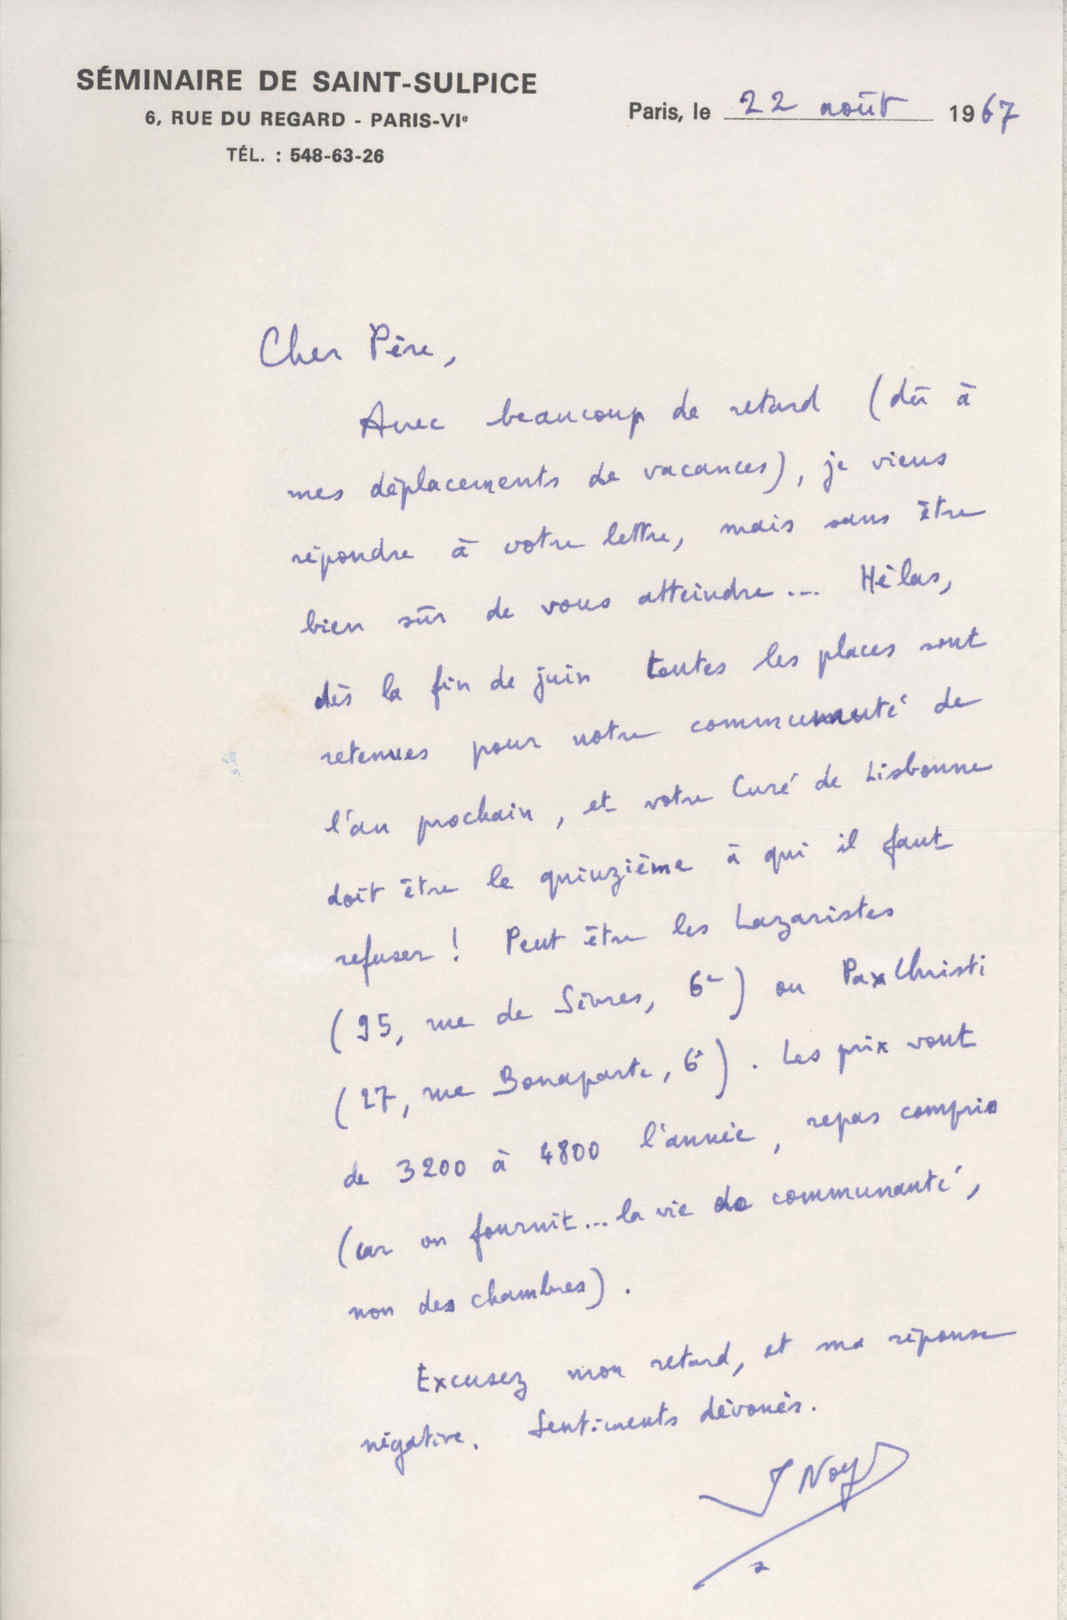 SÉMINAIRE DE SAINT-SULPICE
6, RUE DU REGARD - PARIS-VIe
TÉL. : 548-63-26
Paris, le 22 août 1967
Cher Père,
Avec beaucoup de retard (dû à
mes déplacements de vacances), je viens
répondre à votre lettre, mais sans être
bien sûr de vous atteindre... Hélas,
dès la fin de juin toutes les places sont
retenues pour notre communauté de
l'an prochain, et votre Curé de Lisbonne
doit être le quinzième à qui il faut
refuser ! Peut être les Lazaristes
(95, rue de Sèvres, 6e) ou Pax Christi
(27, rue Bonaparte, 6e). Les prix vont
de 3200 à 4800 l'année, repas compris
(car on fournit... la vie de communauté,
non des chambres).
Excusez mon retard, et ma réponse
négative. Sentiments dévoués.
J Noy